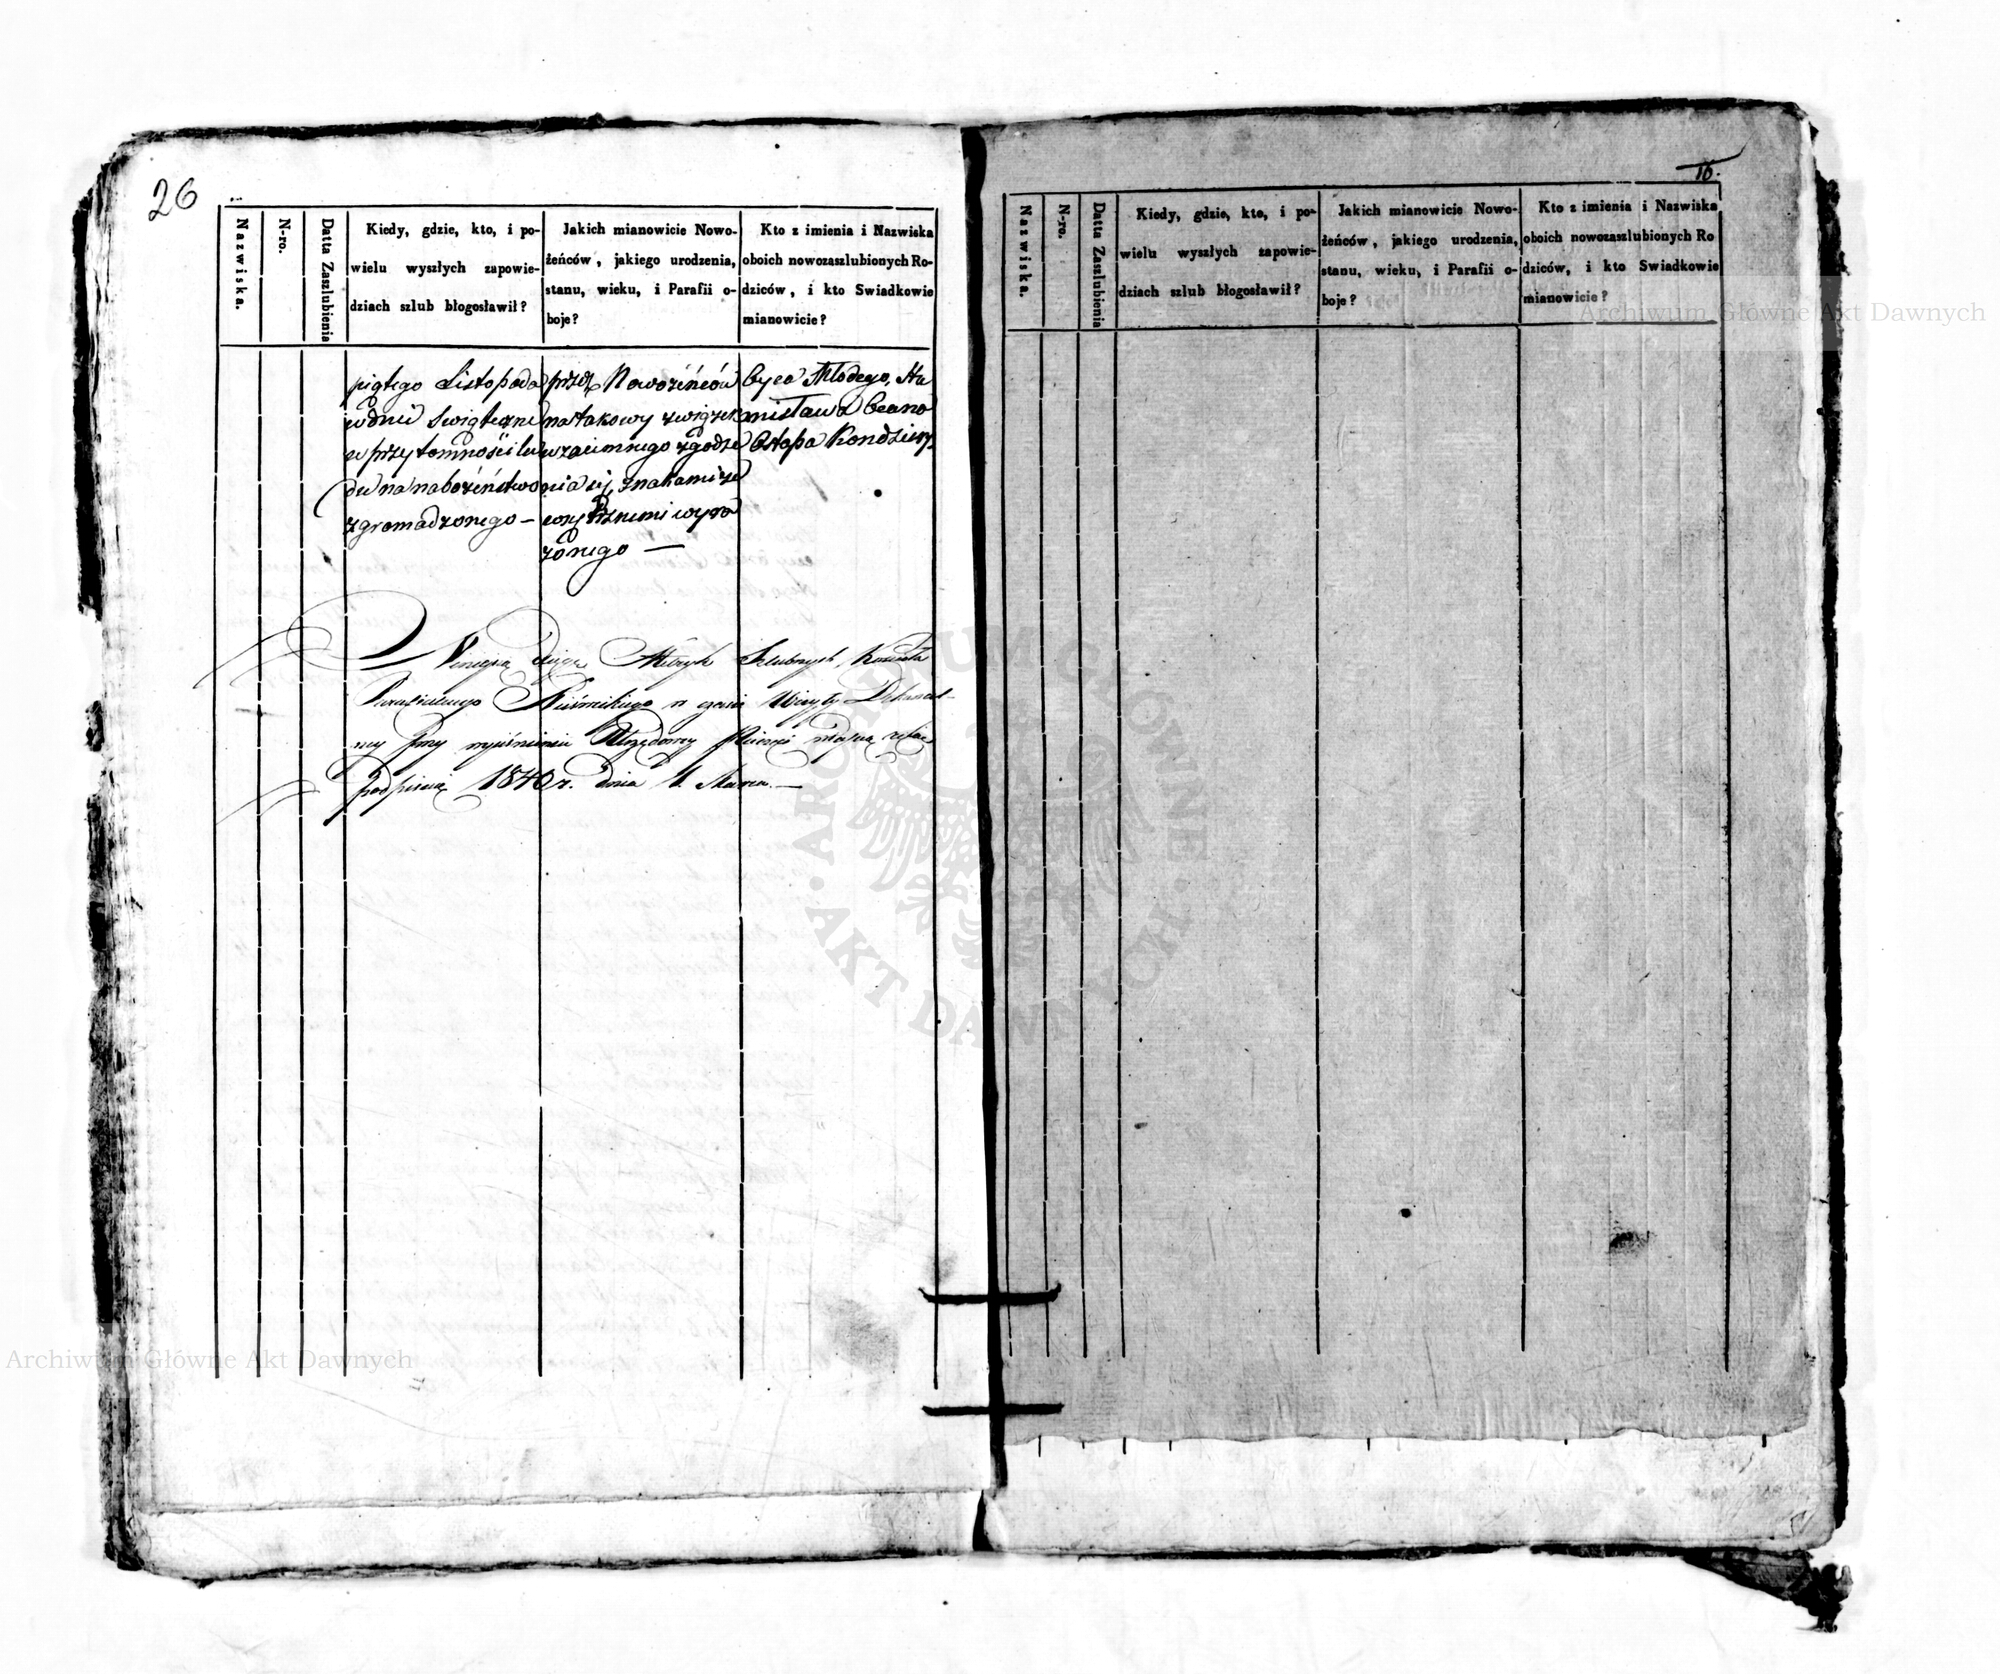 26
Nazwiska.
N-ro.
Datta Zaszlubienia
Kiedy, gdzie, kto, i po-
wielu wyszłych zapowie-
dziach szlub błogosławił?
Jakich mianowicie Nowo-
żeńców, jakiego urodzenia,
stanu, wieku, i Parafii o-
boje?
Kto z imienia i Nazwiska
oboich nowozaszlubionych Ro-
dziców, i kto Swiadkowie
mianowicie?
piątego Listopada
w dniu Swiąteczne
w przytomności lu
du na nabożeństwo
zgromadzonego —
przez Nowożeńców
na takowy związek
wzaiemnego zgodze
nia się, znakami ze
wnętrznemi wyra
żonego —
byca Młodego, Sta
nisława
Ostapa
Ninieysza Xięga Metryk Szlubnych Kościoła
Parafialnego w czasie Wizyty Dekanal-
ney przy Urzędowey Pieczęci własną ręką
podpisuię 1840 r. dnia 1. Marca. —
16.
Nazwiska.
N-ro.
Datta Zaszlubienia
Kiedy, gdzie, kto, i po-
wielu wyszłych zapowie-
dziach szlub błogosławił?
Jakich mianowicie Nowo-
żeńców, jakiego urodzenia,
stanu, wieku, i Parafii o-
boje?
Kto z imienia i Nazwiska
oboich nowozaszlubionych Ro
dziców, i kto Swiadkowie
mianowicie?
Archiwum Główne Akt Dawnych
ARCHIWUM GŁÓWNE • AKT DAWNYCH •
Archiwum Główne Akt Dawnych